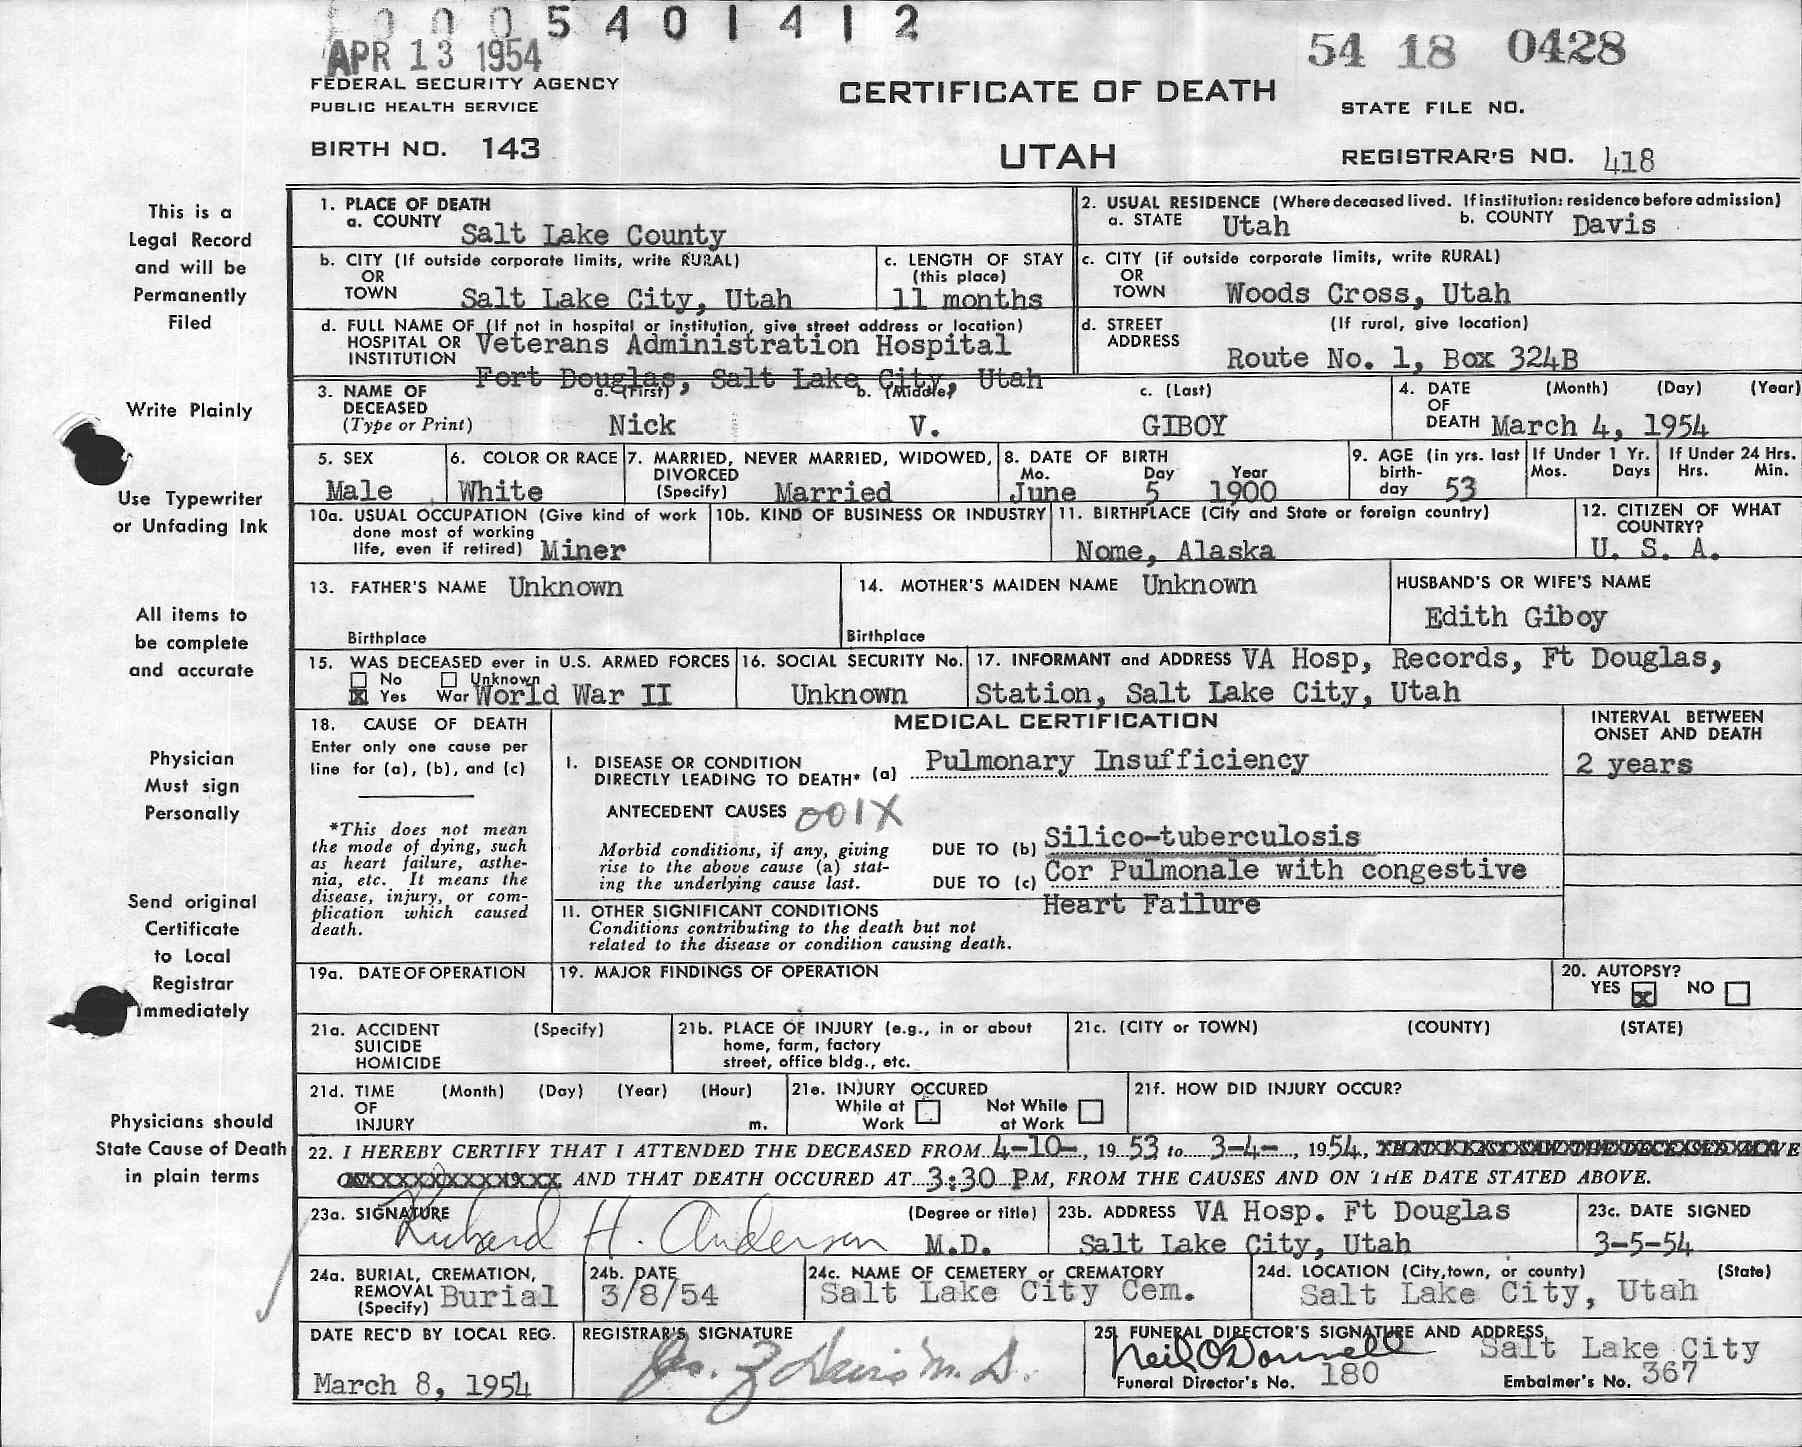 0005401412
APR 13 1954
54 18 0428
FEDERAL SECURITY AGENCY
PUBLIC HEALTH SERVICE
CERTIFICATE OF DEATH
STATE FILE NO.
BIRTH NO. 143
UTAH
REGISTRAR'S NO. 418
This is a
Legal Record
and will be
Permanently
Filed
Write Plainly
Use Typewriter
or Unfading Ink
All items to
be complete
and accurate
Physician
Must sign
Personally
Send original
Certificate
to Local
Registrar
Immediately
Physicians should
State Cause of Death
in plain terms
1. PLACE OF DEATH
a. COUNTY Salt Lake County
2. USUAL RESIDENCE (Where deceased lived. If institution: residence before admission)
a. STATE Utah b. COUNTY Davis
b. CITY (If outside corporate limits, write RURAL)
OR
TOWN Salt Lake City, Utah
c. LENGTH OF STAY
(this place)
11 months
c. CITY (if outside corporate limits, write RURAL)
OR
TOWN Woods Cross, Utah
d. FULL NAME OF (If not in hospital or institution, give street address or location)
HOSPITAL OR Veterans Administration Hospital
INSTITUTION
Fort Douglas, Salt Lake City, Utah
d. STREET (If rural, give location)
ADDRESS
Route No. 1, Box 324B
3. NAME OF a. (First) b. (Middle) c. (Last)
DECEASED
(Type or Print) Nick V. GIBOY
4. DATE (Month) (Day) (Year)
OF
DEATH March 4, 1954
5. SEX
Male
6. COLOR OR RACE
White
7. MARRIED, NEVER MARRIED, WIDOWED,
DIVORCED
(Specify) Married
8. DATE OF BIRTH
Mo. Day Year
June 5 1900
9. AGE (in yrs. last
birth-
day 53
If Under 1 Yr.
Mos. Days
If Under 24 Hrs.
Hrs. Min.
10a. USUAL OCCUPATION (Give kind of work
done most of working
life, even if retired) Miner
10b. KIND OF BUSINESS OR INDUSTRY
11. BIRTHPLACE (City and State or foreign country)
Nome, Alaska
12. CITIZEN OF WHAT
COUNTRY?
U. S. A.
13. FATHER'S NAME Unknown
Birthplace
14. MOTHER'S MAIDEN NAME Unknown
Birthplace
HUSBAND'S OR WIFE'S NAME
Edith Giboy
15. WAS DECEASED ever in U.S. ARMED FORCES
No Unknown
x Yes War World War II
16. SOCIAL SECURITY No.
Unknown
17. INFORMANT and ADDRESS VA Hosp, Records, Ft Douglas,
Station, Salt Lake City, Utah
18. CAUSE OF DEATH
Enter only one cause per
line for (a), (b), and (c)
*This does not mean
the mode of dying, such
as heart failure, asthe-
nia, etc. It means the
disease, injury, or com-
plication which caused
death.
MEDICAL CERTIFICATION
INTERVAL BETWEEN
ONSET AND DEATH
I. DISEASE OR CONDITION
DIRECTLY LEADING TO DEATH* (a) Pulmonary Insufficiency
2 years
ANTECEDENT CAUSES 001X
Morbid conditions, if any, giving
rise to the above cause (a) stat-
ing the underlying cause last.
DUE TO (b) Silico-tuberculosis
DUE TO (c) Cor Pulmonale with congestive
Heart Failure
II. OTHER SIGNIFICANT CONDITIONS
Conditions contributing to the death but not
related to the disease or condition causing death.
19a. DATE OF OPERATION
19. MAJOR FINDINGS OF OPERATION
20. AUTOPSY?
YES x NO
21a. ACCIDENT (Specify)
SUICIDE
HOMICIDE
21b. PLACE OF INJURY (e.g., in or about
home, farm, factory
street, office bldg., etc.
21c. (CITY or TOWN) (COUNTY) (STATE)
21d. TIME (Month) (Day) (Year) (Hour)
OF
INJURY m.
21e. INJURY OCCURED
While at Work
Not While at Work
21f. HOW DID INJURY OCCUR?
22. I HEREBY CERTIFY THAT I ATTENDED THE DECEASED FROM 4-10-, 1953 to 3-4-, 1954, THAT I LAST SAW THE DECEASED ALIVE
AND THAT DEATH OCCURED AT 3:30 P.M, FROM THE CAUSES AND ON THE DATE STATED ABOVE.
23a. SIGNATURE (Degree or title)
Richard H. Anderson M.D.
23b. ADDRESS VA Hosp. Ft Douglas
Salt Lake City, Utah
23c. DATE SIGNED
3-5-54
24a. BURIAL, CREMATION,
REMOVAL
(Specify) Burial
24b. DATE
3/8/54
24c. NAME OF CEMETERY or CREMATORY
Salt Lake City Cem.
24d. LOCATION (City, town, or county) (State)
Salt Lake City, Utah
DATE REC'D BY LOCAL REG.
March 8, 1954
REGISTRAR'S SIGNATURE
25. FUNERAL DIRECTOR'S SIGNATURE AND ADDRESS
Neil O'Donnell Salt Lake City
Funeral Director's No. 180 Embalmer's No. 367